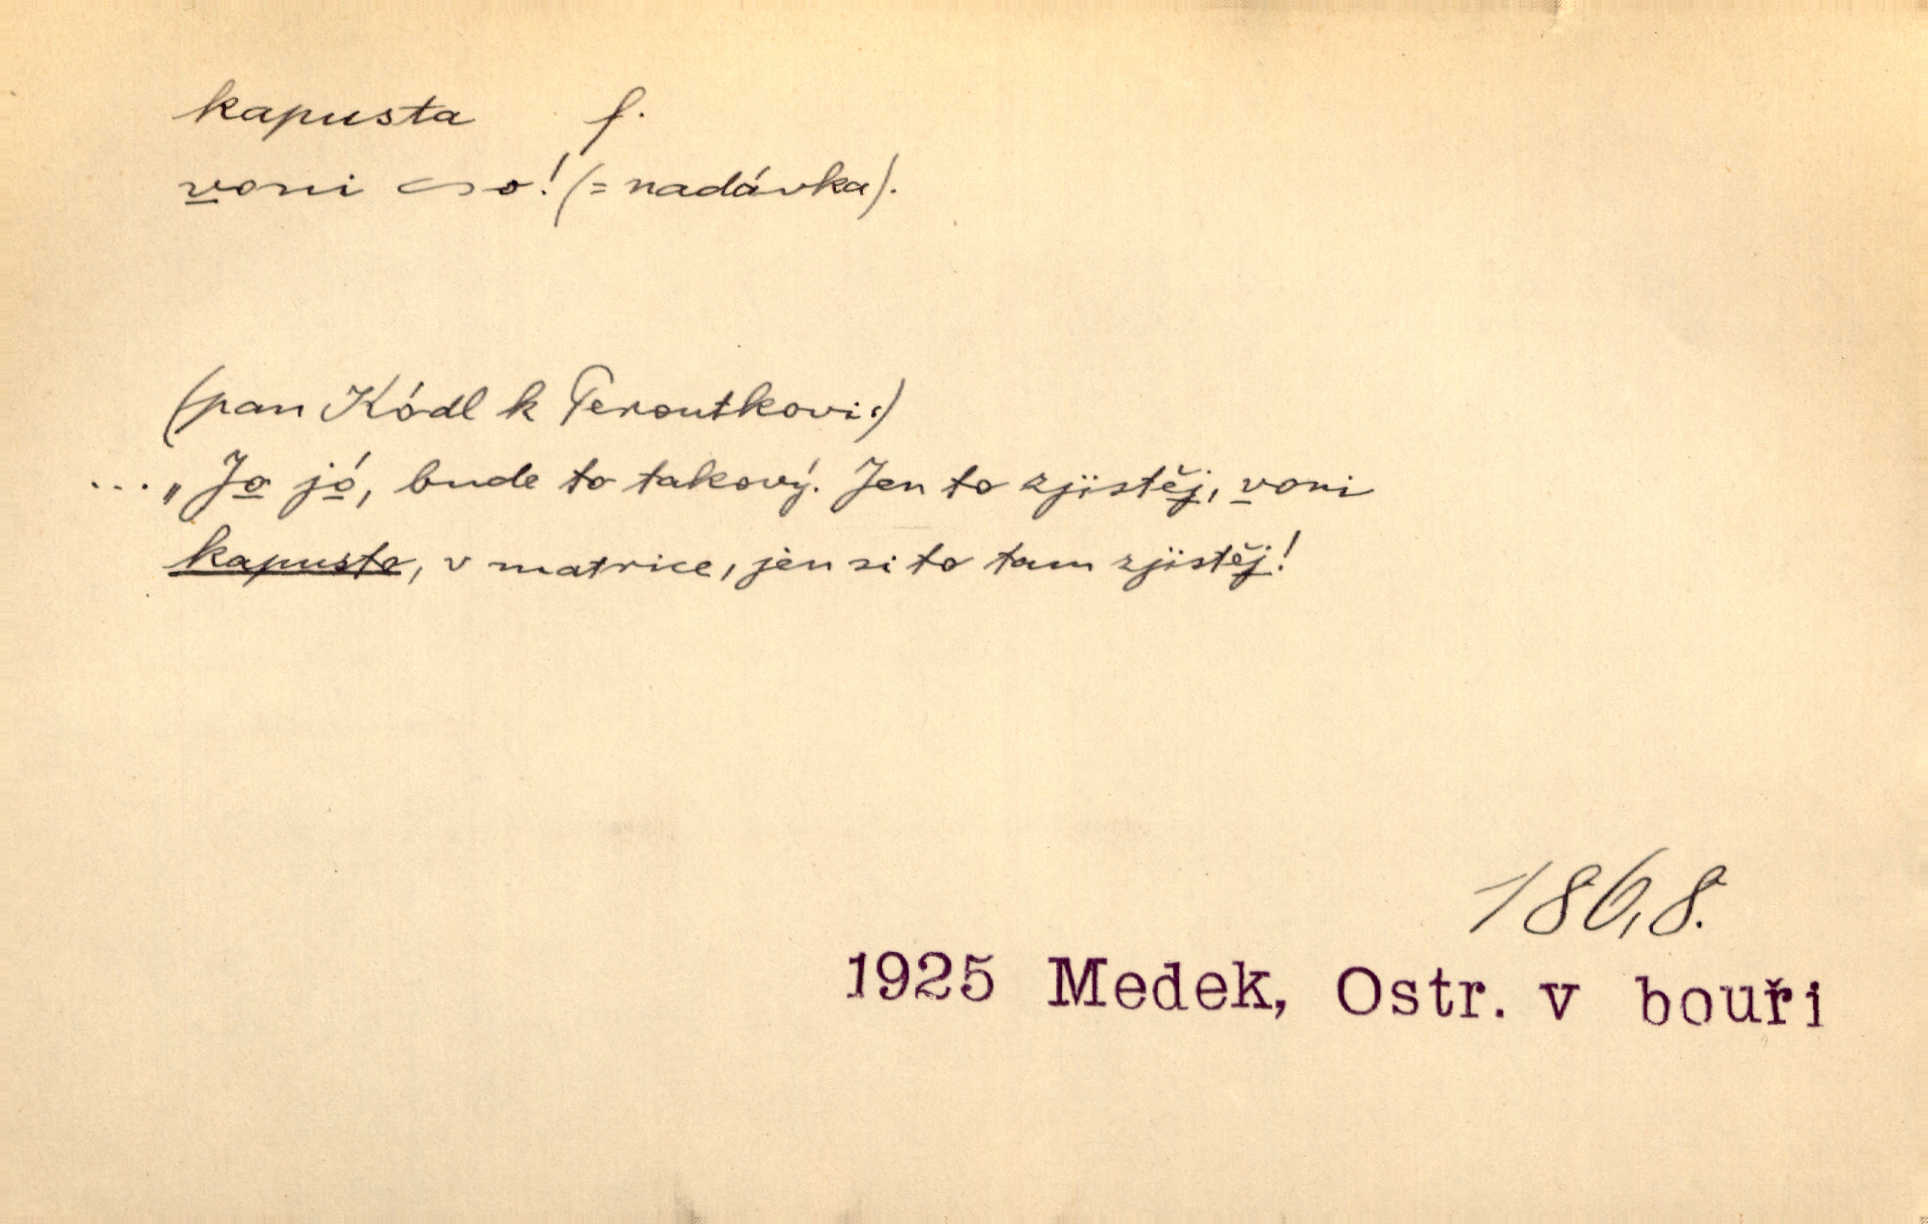 kapusta f.
voni ~o! (= nadávka).
(pan Kódl k Peroutkovi:)
... „Jo jó, bude to takový. Jen to zjistěj, voni
kapusto, v matrice, jen si to tam zjistěj!
186,8.
1925 Medek, Ostr. v bouři